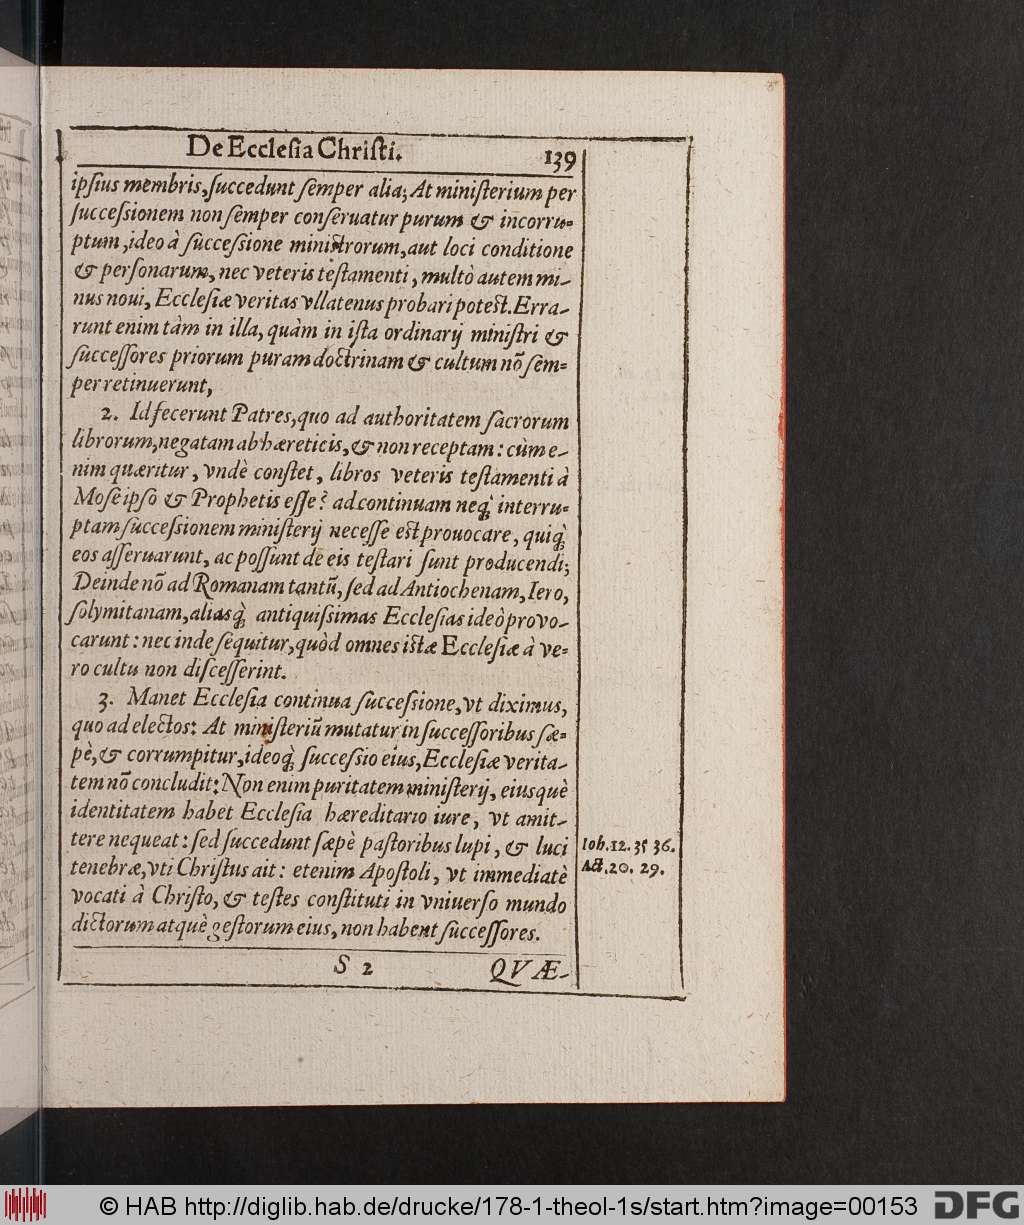 De Ecclesia Christi. 139
ipsius membris, succedunt semper alia; At ministerium per
successionem non semper conseruatur purum & incorru-
ptum, ideo à successione ministrorum, aut loci conditione
& personarum, nec veteris testamenti, multò autem mi-
nus noui, Ecclesiæ veritas vllatenus probari potest. Erra-
runt enim tàm in illa, quàm in ista ordinarij ministri &
successores priorum puram doctrinam & cultum nõ sem-
per retinuerunt,
2. Id fecerunt Patres, quo ad authoritatem sacrorum
librorum, negatam ab hæreticis, & non receptam: cùm e-
nim quæritur, vndè constet, libros veteris testamenti à
Mose ipso & Prophetis esse? ad continuam neq; interru-
ptam successionem ministerij necesse est prouocare, quiq;
eos asseruarunt, ac possunt de eis testari sunt producendi;
Deinde nõ ad Romanam tantũ, sed ad Antiochenam, Iero,
solymitanam, aliasq; antiquissimas Ecclesias ideò provo-
carunt: nec inde sequitur, quòd omnes istæ Ecclesiæ à ve-
ro cultu non discesserint.
3. Manet Ecclesia continua successione, vt diximus,
quo ad electos: At ministeriũ mutatur in successoribus sæ-
pè, & corrumpitur, ideoq; successio eius, Ecclesiæ verita-
tem nõ concludit: Non enim puritatem ministerij, eiusquè
identitatem habet Ecclesia hæreditario iure, vt amit-
tere nequeat: sed succedunt sæpè pastoribus lupi, & luci
tenebræ, vti Christus ait: etenim Apostoli, vt immediatè
vocati à Christo, & testes constituti in vniuerso mundo
dictorum atquè gestorum eius, non habent successores.
Ioh. 12. 35 36.
Act. 20. 29.
S 2 QVÆ-
© HAB http://diglib.hab.de/drucke/178-1-theol-1s/start.htm?image=00153 DFG